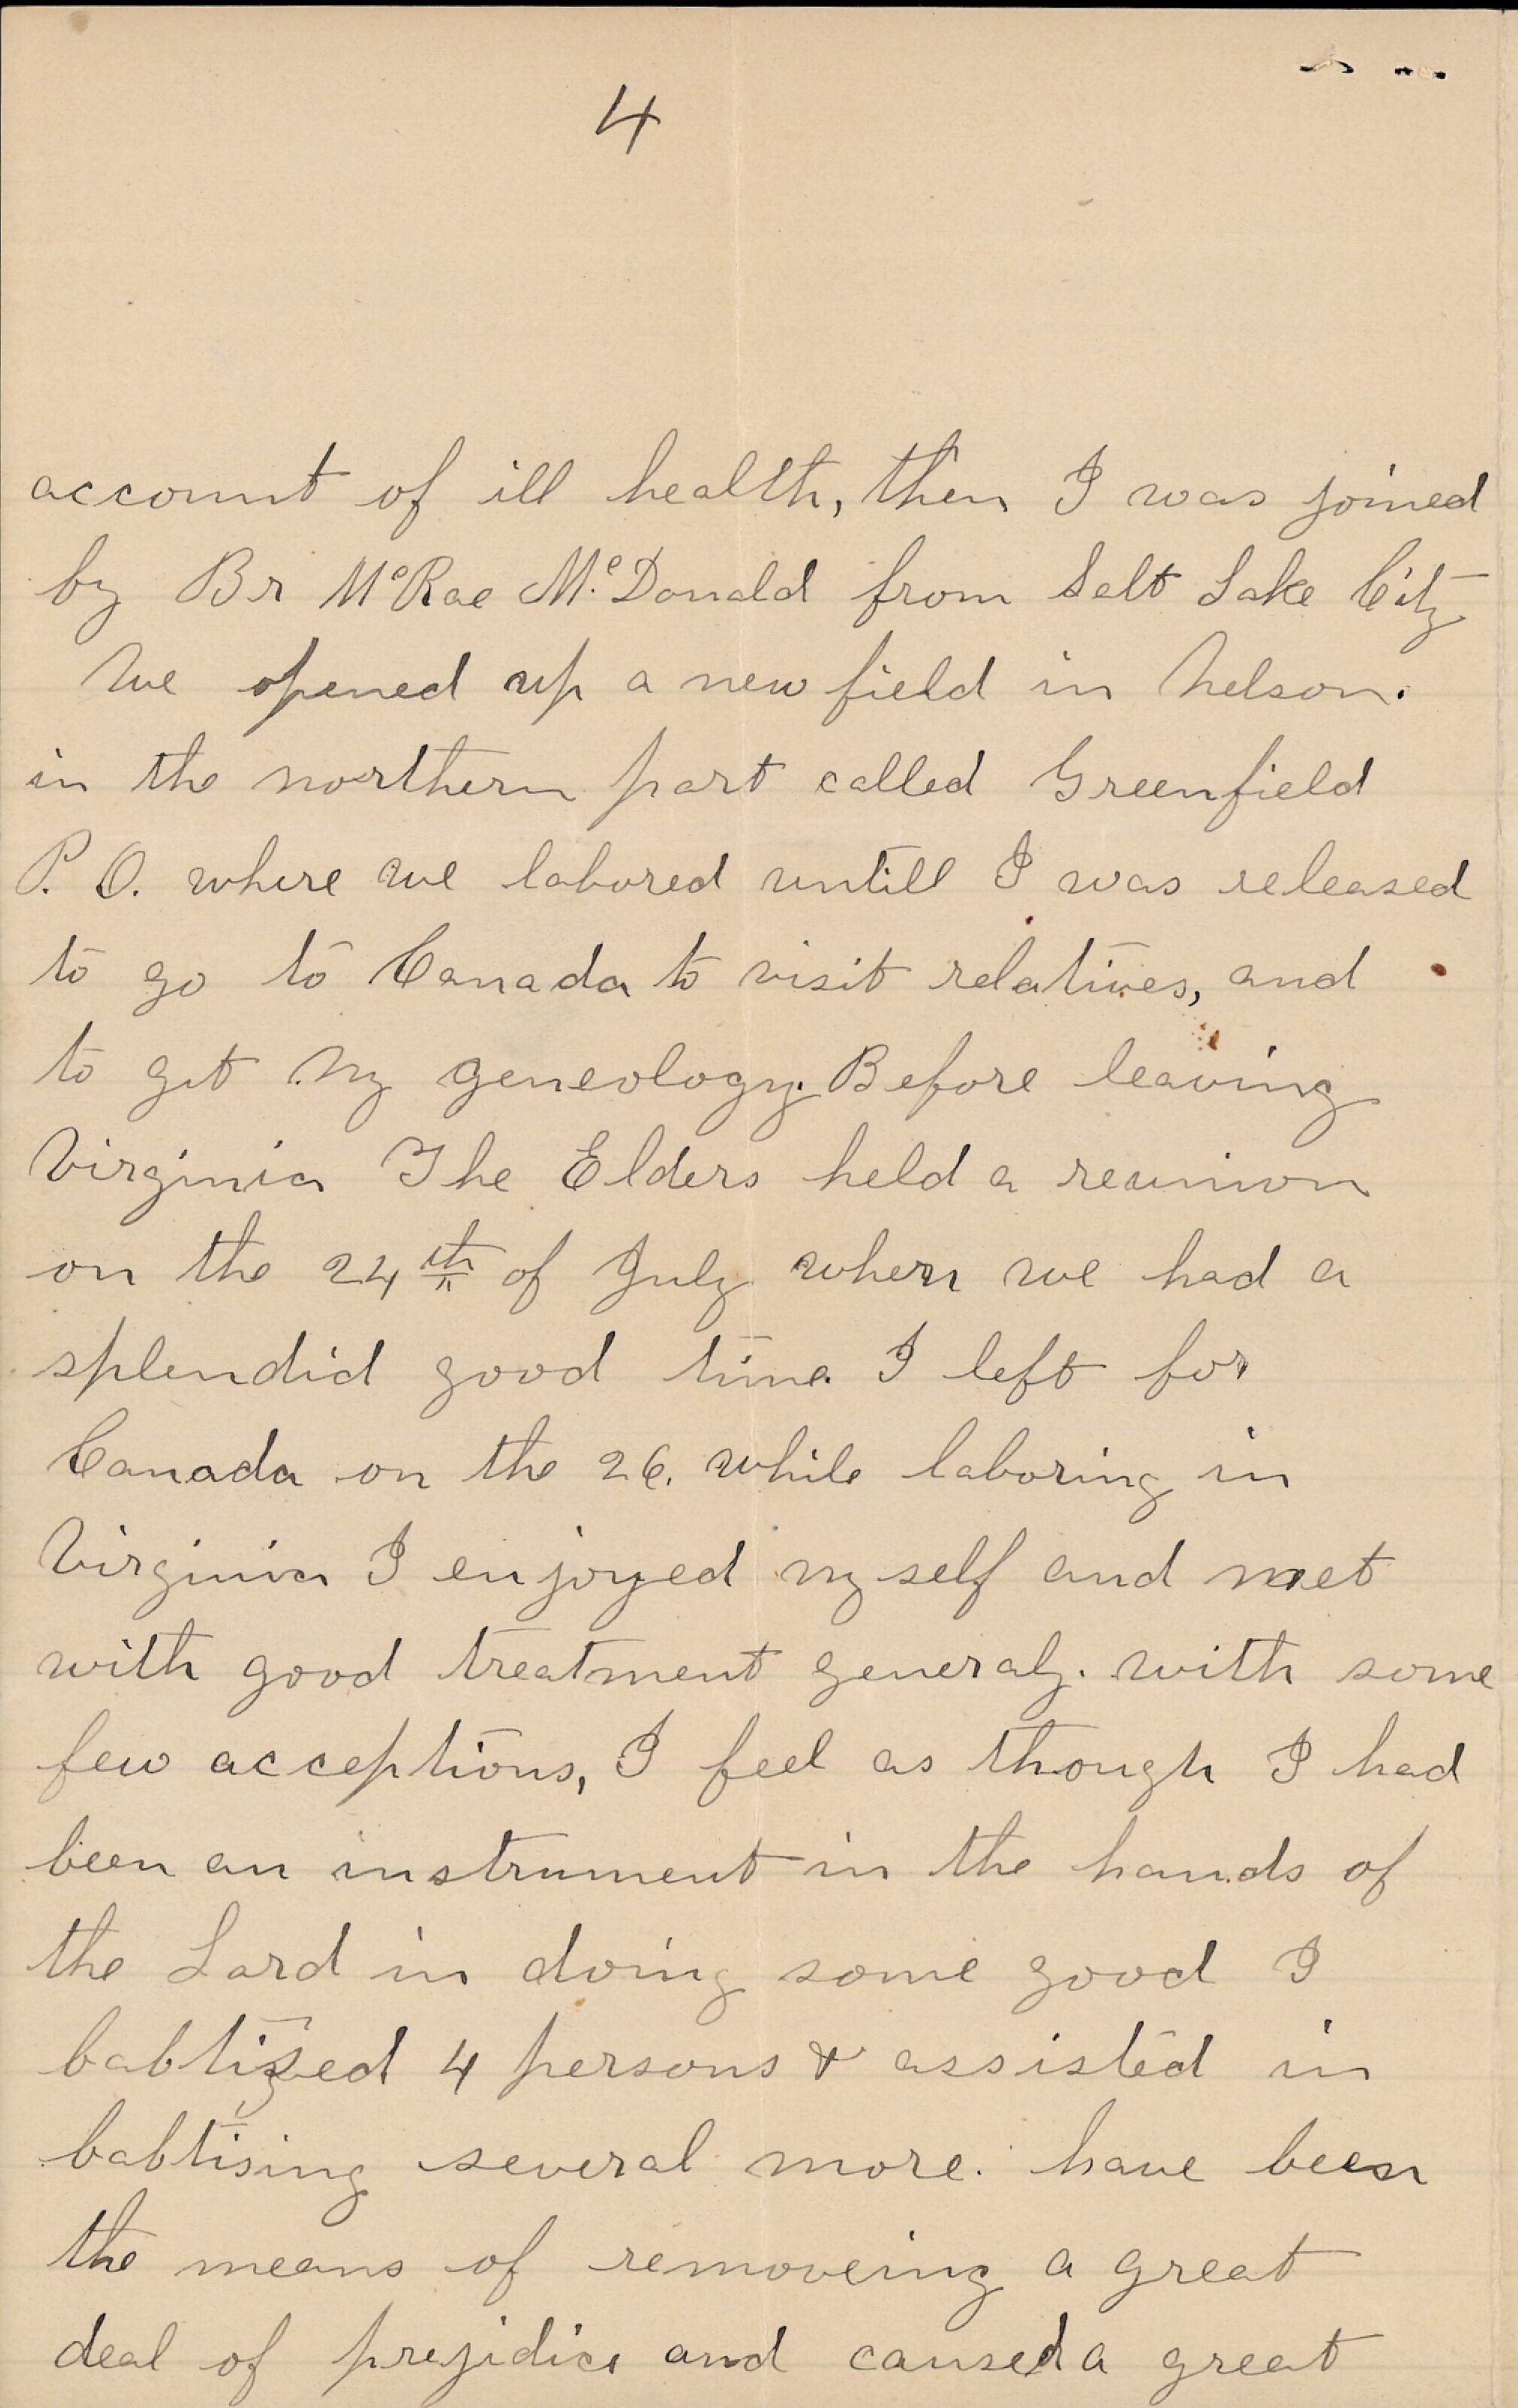 4
account of ill health, then I was joined
by Br McRae Mc.Donald from Salt Lake City
We opened up a new field in Nelson.
in the northern part called Greenfield
P. O. where we labored untill I was released
to go to Canada to visit relatives, and
to get my geneology. Before leaving
Virginia The Elders held a reunion
on the 24th of July when we had a
splendid good time. I left for
Canada on the 26. while laboring in
Virginia I enjoyed my self and met
with good treatment generaly. with some
few acceptions, I feel as though I had
been an instrument in the hands of
the Lord in doing some good I
babtized 4 persons & assisted in
babtising several more. have been
the means of removeing a great
deal of prejidice and caused a great